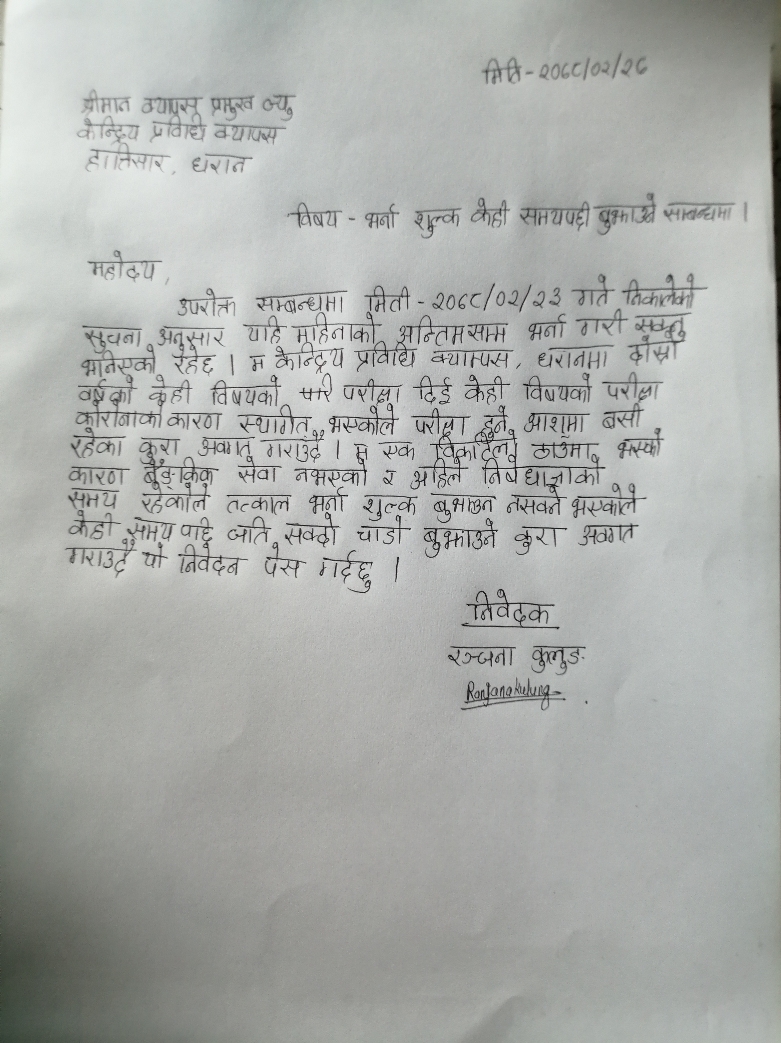 मिति - २०७८/०२/२८
श्रीमान क्याम्पस प्रमुख ज्यु
केन्द्रिय प्रविधि क्याम्पस
हात्तिसार, धरान
विषय - भर्ना शुल्क केही समयपछी बुझाउने सम्बन्धमा ।
महोदय,
उपरोक्त सम्बन्धमा मिती - २०७८/०२/२३ गते निकालेको
सुचना अनुसार यहि महिनाको अन्तिमसम्म भर्ना गरी सक्नु
भनिएको रहेछ । म केन्द्रिय प्रविधि क्याम्पस, धरानमा दोस्रो
वर्षको केही विषयको परीक्षा दिई केही विषयको परीक्षा
कोरोनाको कारण स्थागित भएकोले परीक्षा हुने आशमा बसी
रहेका कुरा अवगत गराउँदै । म एक विकटित ठाउँमा भएको
कारण बैङ्किक सेवा नभएको र अहिले निषेधाज्ञाको
समय रहेकोले तत्काल भर्ना शुल्क बुझाउन नसक्ने भएकोले
केही समय पछि जति सक्दो चाडो बुझाउने कुरा अवगत
गराउदै यो निवेदन पेस गर्दछु ।
निवेदक
रञ्जना कुलुङ
Ranjana kulung